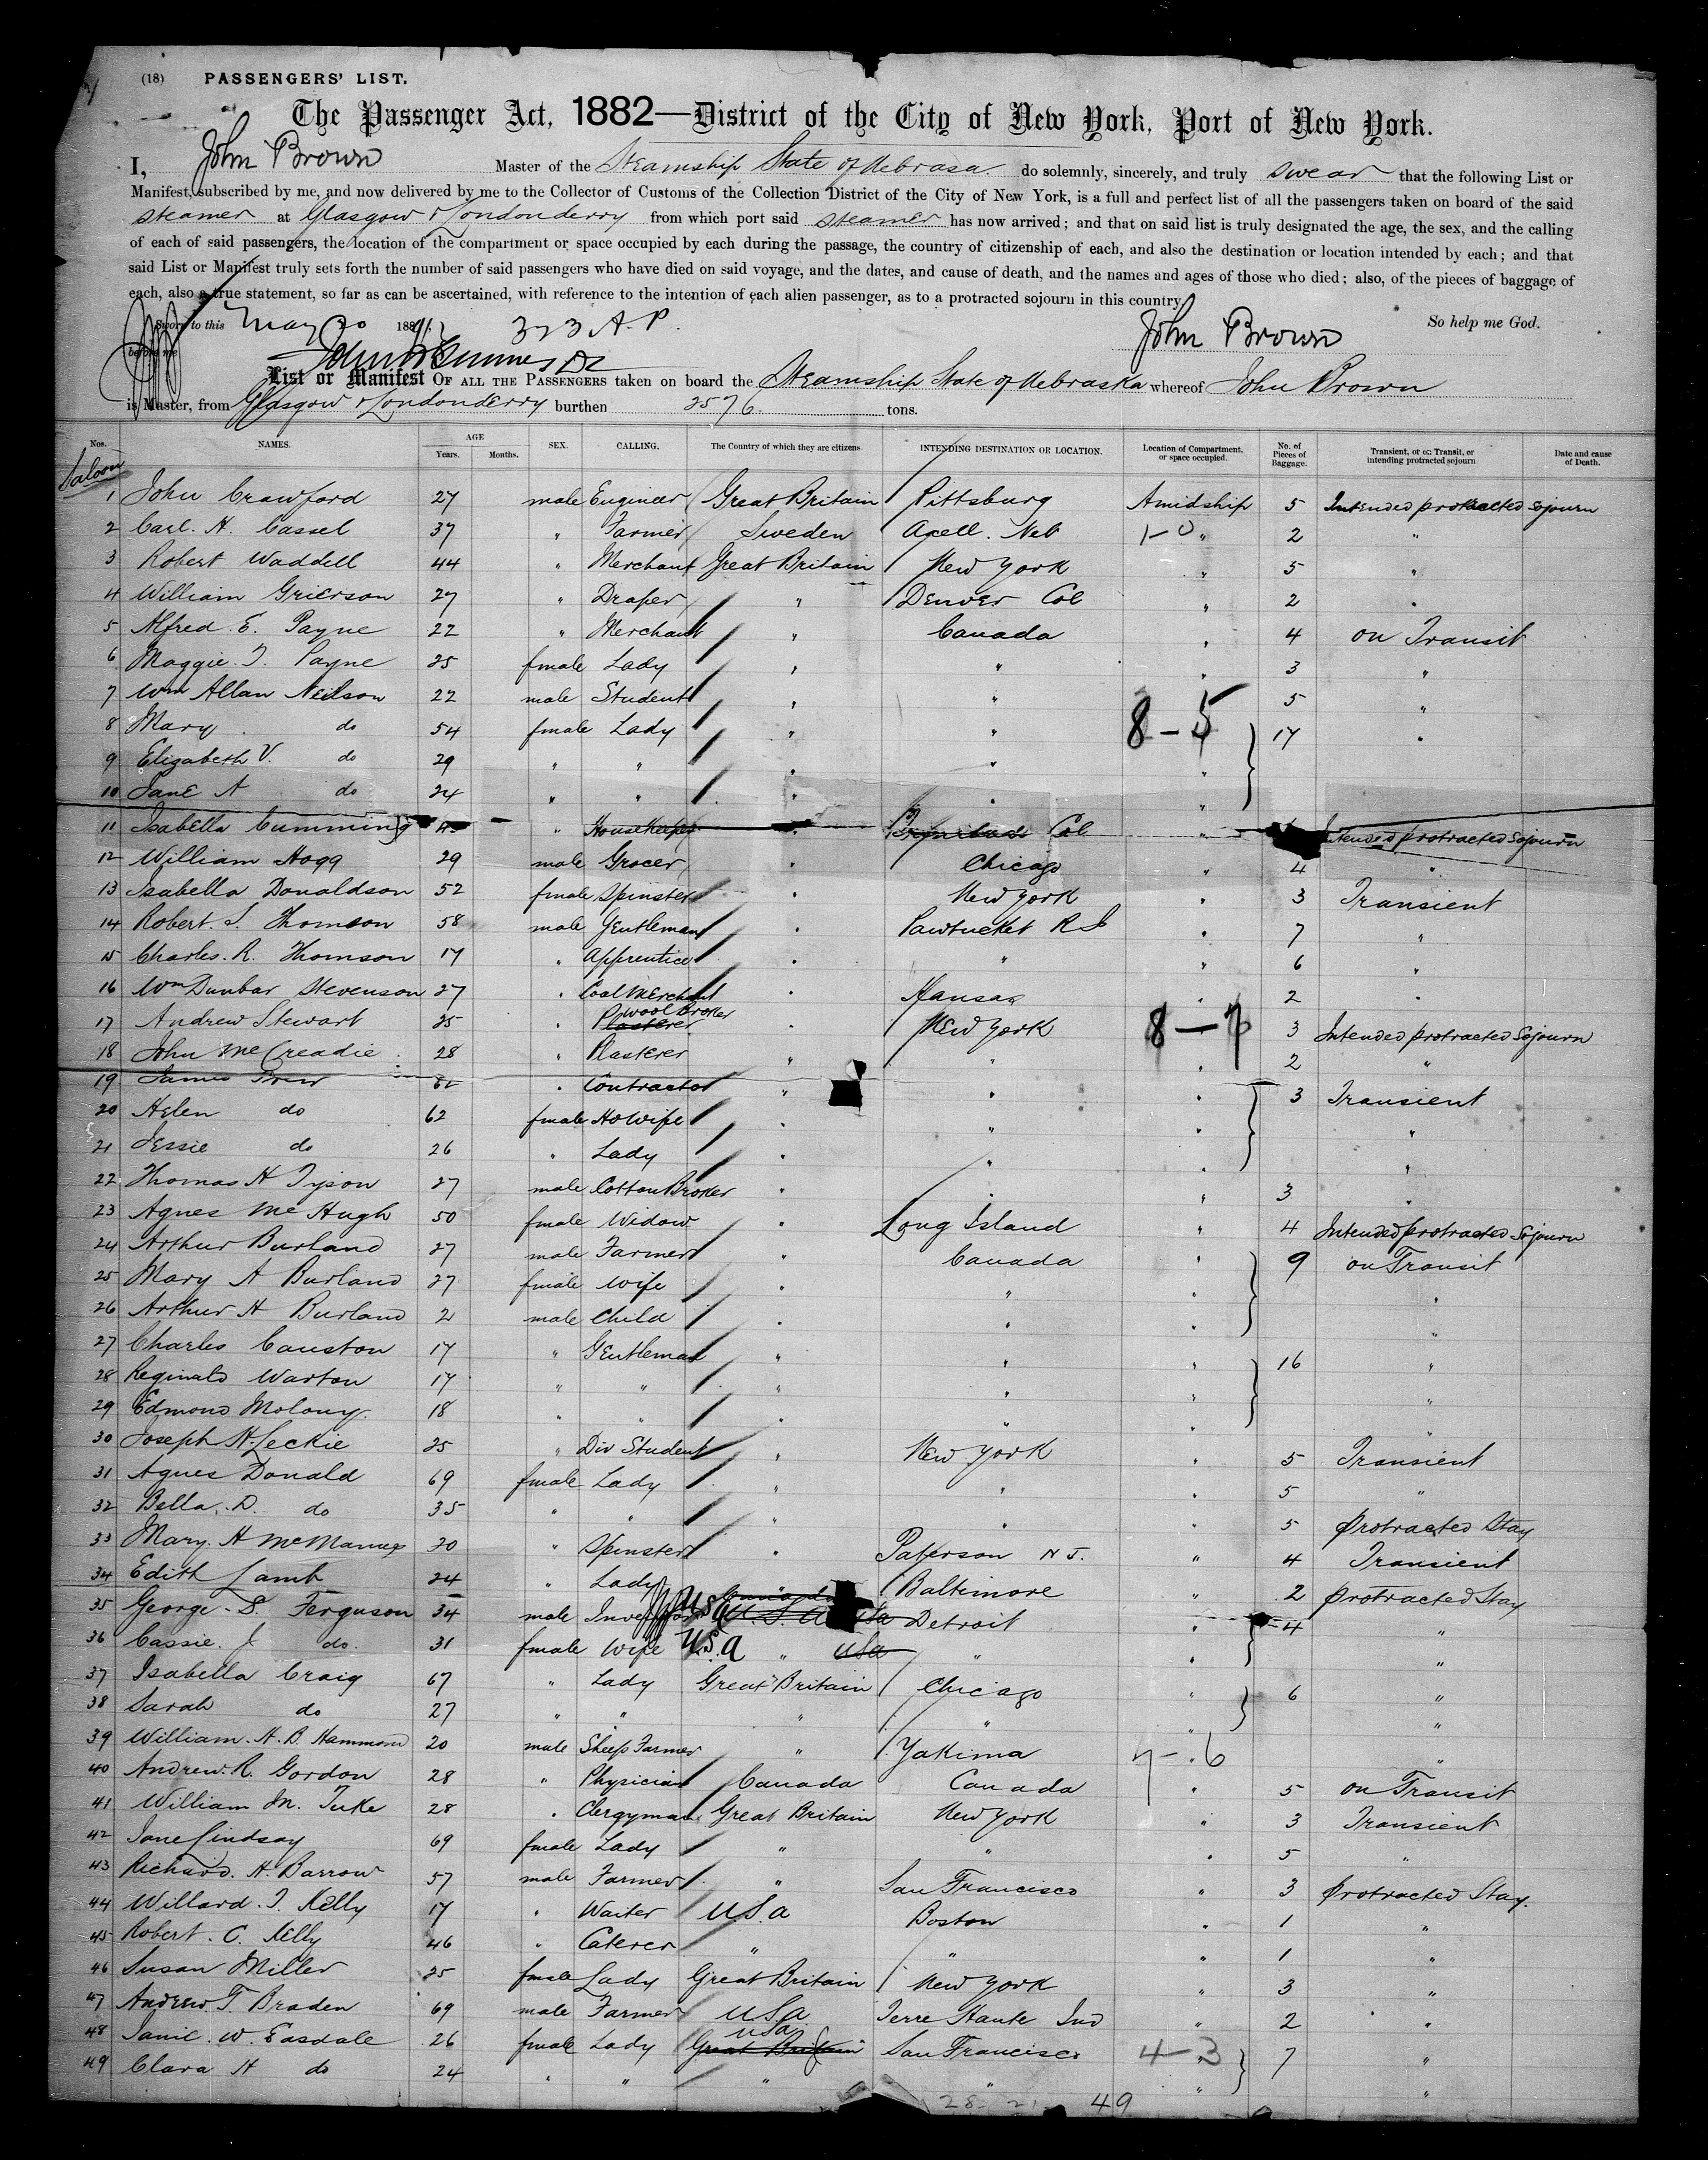 (18) PASSENGERS' LIST.
The Passenger Act, 1882—District of the City of New York, Port of New York.
I, John Brown Master of the Steamship State of Nebrasa do solemnly, sincerely, and truly swear that the following List or
Manifest, subscribed by me, and now delivered by me to the Collector of Customs of the Collection District of the City of New York, is a full and perfect list of all the passengers taken on board of the said
steamer at Glasgow & Londonderry from which port said steamer has now arrived; and that on said list is truly designated the age, the sex, and the calling
of each of said passengers, the location of the compartment or space occupied by each during the passage, the country of citizenship of each, and also the destination or location intended by each; and that
said List or Manifest truly sets forth the number of said passengers who have died on said voyage, and the dates, and cause of death, and the names and ages of those who died; also, of the pieces of baggage of
each, also a true statement, so far as can be ascertained, with reference to the intention of each alien passenger, as to a protracted sojourn in this country.
Sworn to this May 188 323 A.P. John Brown So help me God.
before me
List or Manifest OF ALL THE PASSENGERS taken on board the Steamship State of Nebraska whereof John Brown
is Master, from Glasgow & Londonderry burthen 2576 tons.
Nos. NAMES. AGE Years. Months. SEX. CALLING. The Country of which they are citizens. INTENDING DESTINATION OR LOCATION. Location of Compartment, or space occupied. No. of Pieces of Baggage. Transient, or on Transit, or intending protracted sojourn Date and cause of Death.
Saloon
1 John Crawford 27 male Engineer Great Britain Pittsburg Amidship 5 Intended protracted sojourn
2 Carl. H. Cassel 37 " Farmer Sweden Axell. Neb 1-0 " 2 "
3 Robert Waddell 44 " Merchant Great Britain New York " 5 "
4 William Grierson 27 " Draper " Denver Col " 2 "
5 Alfred. E. Payne 22 " Merchant " Canada " 4 on Transit
6 Maggie. T. Payne 25 fmale Lady " " " 3 "
7 Wm Allan Neilson 22 male Student " " 5 "
8 Mary do 54 fmale Lady " " 8-5 17 "
9 Elizabeth V. do 29 " " " " "
10 Jane A do 24 " " " " "
11 Isabella Cumming " Housekeeper " Col " Intended protracted Sojourn
12 William Hogg 29 male Grocer " Chicago " 4 "
13 Isabella Donaldson 52 fmale Spinster " New York " 3 Transient
14 Robert. S. Thomson 58 male Gentleman " Pawtucket R I " 7 "
15 Charles. R. Thomson 17 " Apprentice " " " 6 "
16 Wm Dunbar Stevenson 27 " Coal Merchant " Kansas " 2 "
17 Andrew Stewart 25 " Plasterer Wool Broker " New York 8-7 3 Intended protracted Sojourn
18 John McCreadie 28 " Plasterer " " " 2 "
19 James " Contractor " " " 3 Transient
20 Helen do 62 fmale Ho Wife " " " "
21 Jessie do 26 " Lady " " " "
22 Thomas H Tyson 27 male Cotton Broker " " " 3 "
23 Agnes McHugh 50 fmale Widow " Long Island " 4 Intended protracted Sojourn
24 Arthur Burland 27 male Farmer " Canada " 9 on Transit
25 Mary A Burland 27 fmale Wife " " " "
26 Arthur H Burland 2 male Child " " " "
27 Charles Causton 17 " Gentleman " " " 16 "
28 Reginald Warton 17 " " " " " "
29 Edmond Molony 18 " " " " " "
30 Joseph H. Leckie 25 " Div Student " New York " 5 Transient
31 Agnes Donald 69 fmale Lady " " " 5 "
32 Bella. D. do 35 " " " " " 5 protracted Stay
33 Mary. H McManus 20 " Spinster " Paterson N J. " 4 Transient
34 Edith Lamb 24 " Lady Baltimore " 2 protracted Stay
35 George. S. Ferguson 34 male USa Detroit " 4 "
36 Cassie. J do. 31 fmale Wife U.S.a " usa " " "
37 Isabella Craig 67 " Lady Great Britain Chicago " 6 "
38 Sarah do 27 " " " " " "
39 William. H. B. Hammond 20 male Sheep Farmer " Yakima 7-6 "
40 Andrew. R. Gordon 28 " Physician Canada Canada " 5 on Transit
41 William M. Tuke 28 " Clergyman Great Britain New York " 3 Transient
42 Jane Lindsay 69 fmale Lady " " " 5 "
43 Richard. H. Barrow 57 male Farmer " San Francisco " 3 protracted Stay.
44 Willard. T. Kelly 17 " Waiter USa Boston " 1 "
45 Robert. C. Kelly 46 " Caterer " " " 1 "
46 Susan Miller 25 fmale Lady Great Britain New York " 3 "
47 Andrew T. Braden 69 male Farmer USa Terre Haute Ind " 2 "
48 Janie. W. Easdale 26 fmale Lady USa Great Britain San Francisco 4-3 7 "
49 Clara H do 24 " " " " " "
28 21 49